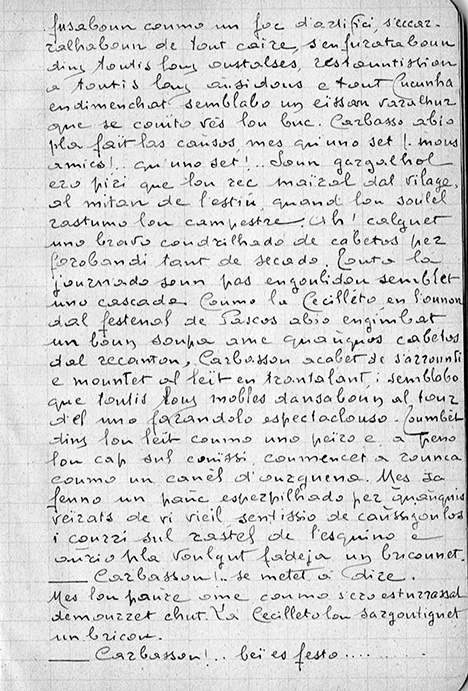 fusaboun coumo un foc d'artifici, s'escar-
ralhaboun de tout caire, s'enfurataboun
dins toutis lous oustalses, restountission
a toutis lous ausidous e tout Cucunha
endimenchat semblabo un eissan varalhur
que se couito vès lou buc. Carbasso abio
pla fait las causos, mes qu'uno set !. mous
amics !.. qu'uno set !.. Soun gargalhol
ero piri que lou rec maïral dal vilage,
al mitan de l'estiu, quand lou soulel
rastumo lou campestre. Ah ! calguet
uno bravo coudrilhado de cabetos per
forobandi tant de secado. Touto la
journado soun pas engoulidou semblet
uno cascado. Coumo la Cecilleto en l'ounou
dal festenal de Pascos abio engimbat
un boun soupa ame quauquos cabetos
dal recantou, Carbassou acabet de s'arrounti
e mountet al leït en trantalant ; semblabo
que toutis lous mobles dansaboun al tour
d'el uno farandolo espectaclouso. Toumbèt
dins lou leit coumo uno peiro e, a peno
lou cap sul couissi coumencet a rounca
coumo un canèl d'ourgueno. Mes sa
fenno un pauc esperpilhado per quauquis
veirats de vi vieil, sentissio de caussigoulos
i courri sul rastel de l'esquino e
aurio pla voulgut fadeja un bricounet.
— Carbassou !.. se metet a dire.
Mes lou paure ome coumo s'ero esturrassat
demouret chut. La Cecilleto lou sargoutiguet
un bricou.
— Carbassou !.. beï es festo..........